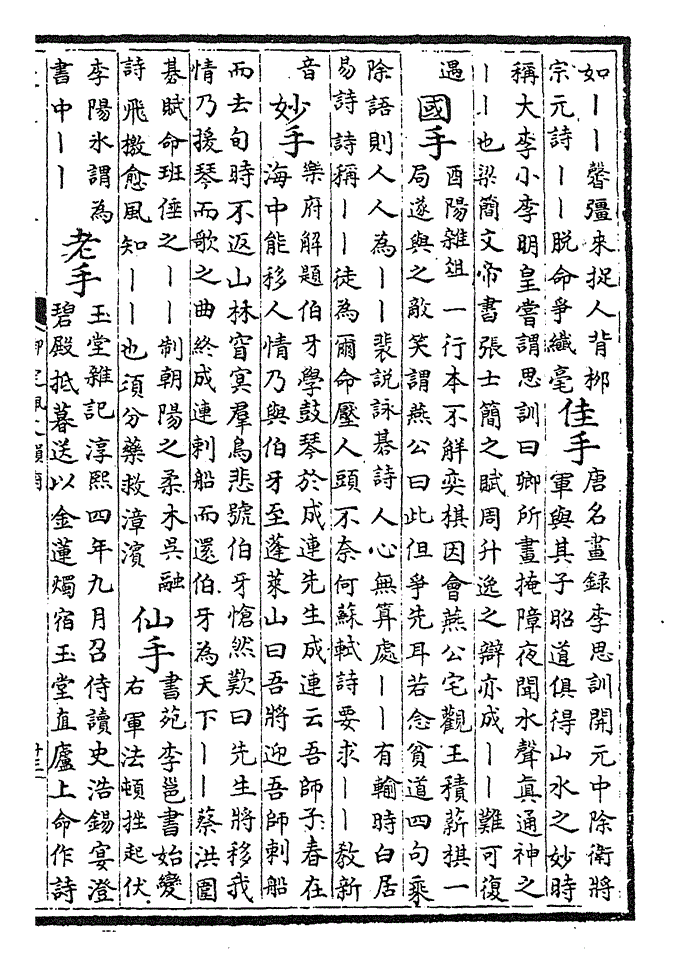 如丨丨罄彊來捉人背栁
宗元詩丨丨脱命爭纎毫
佳手
唐名畫録李思訓開元中除衛將
軍與其子昭道俱得山水之妙時
稱大李小李明皇嘗謂思訓曰卿所畫掩障夜聞水聲真通神之
丨丨也梁簡文帝書張士簡之賦周升逸之辯亦成丨丨難可復
遇
國手
酉陽雜俎一行本不解奕棋因會燕公宅觀王積薪棋一
局遂與之敵笑謂燕公曰此但爭先耳若念貧道四句乘
除語則人人為丨丨裴説詠棊詩人心無算處丨丨有輸時白居
易詩詩稱丨丨徒為爾命壓人頭不奈何蘇軾詩要求丨丨敎新
音
妙手
樂府解題伯牙學鼓琴於成連先生成連云吾師子春在
海中能移人情乃與伯牙至蓬萊山曰吾將迎吾師刺船
而去旬時不返山林窅冥羣鳥悲號伯牙愴然歎曰先生將移我
情乃援琴而歌之曲終成連刺船而還伯牙為天下丨丨蔡洪圍
棊賦命班倕之丨丨制朝陽之柔木吳融
詩飛檄愈風知丨丨也須分藥救漳濱
仙手
書苑李邕書始變
右軍法頓挫起伏
李陽氷謂為
書中丨丨
老手
玉堂雜記淳熙四年九月召侍讀史浩錫宴澄
碧殿抵暮送以金蓮燭宿玉堂直廬上命作詩